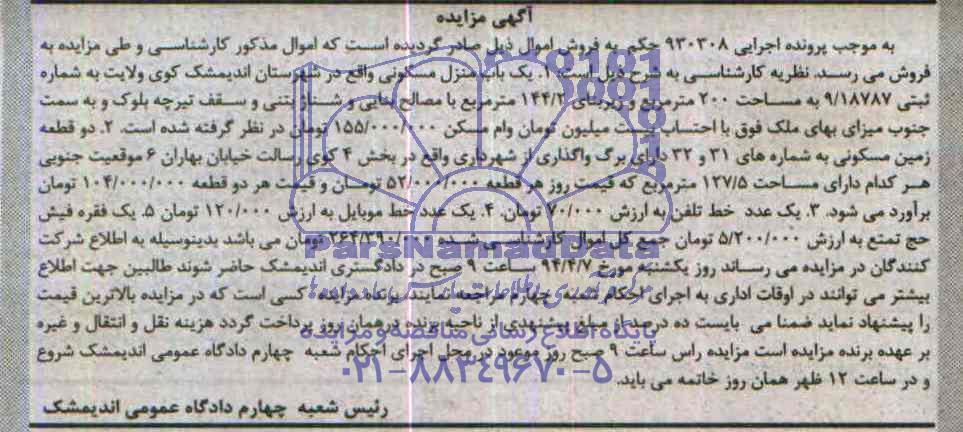 آگهی مزایده
به موجب پرونده اجرایی ۹۳۰۳۰۸ حکم به فروش اموال ذیل صادر گردیده است که اموال مذکور کارشناسی و طی مزایده به
فروش می رسد. نظریه کارشناسی به شرح ذیل است: ۱. یک باب منزل مسکونی واقع در شهرستان اندیمشک کوی ولایت به شماره
ثبتی ۹/۱۸۷۸۷ به مساحت ۲۰۰ مترمربع و زیربنای ۱۴۴/۲ مترمربع با مصالح بنایی و شناژ بتنی و سقف تیرچه بلوک و به سمت
جنوب میزای بهای ملک فوق با احتساب بیست میلیون تومان وام مسکن ۱۵۵/۰۰۰/۰۰۰ تومان در نظر گرفته شده است. ۲. دو قطعه
زمین مسکونی به شماره های ۳۱ و ۳۲ دارای برگ واگذاری از شهرداری واقع در بخش ۴ کوی رسالت خیابان بهاران ۶ موقعیت جنوبی
هر کدام دارای مساحت ۱۲۷/۵ مترمربع که قیمت روز هر قطعه ۵۲/۰۰۰/۰۰۰ تومان و قیمت هر دو قطعه ۱۰۴/۰۰۰/۰۰۰ تومان
برآورد می شود. ۳. یک عدد خط تلفن به ارزش ۷۰/۰۰۰ تومان. ۴. یک عدد خط موبایل به ارزش ۱۲۰/۰۰۰ تومان ۵. یک فقره فیش
حج تمتع به ارزش ۵/۲۰۰/۰۰۰ تومان جمع کل اموال کارشناسی شده ۲۶۴/۳۹۰/۰۰۰ تومان می باشد بدینوسیله به اطلاع شرکت
کنندگان در مزایده می رساند روز یکشنبه مورخ ۹۴/۴/۷ ساعت ۹ صبح در دادگستری اندیمشک حاضر شوند طالبین جهت اطلاع
بیشتر می توانند در اوقات اداری به اجرای احکام شعبه چهارم مراجعه نمایند برنده مزایده کسی است که در مزایده بالاترین قیمت
را پیشنهاد نماید ضمنا می بایست ده درصد از مبلغ پیشنهدی از ناحیه برنده در همان روز پرداخت گردد هزینه نقل و انتقال و غیره
بر عهده برنده مزایده است مزایده راس ساعت ۹ صبح روز موعود در محل اجرای احکام شعبه چهارم دادگاه عمومی اندیمشک شروع
و در ساعت ۱۲ ظهر همان روز خاتمه می باید.
رئیس شعبه چهارم دادگاه عمومی اندیمشک
ParsNamadData
پایگاه اطلاع رسانی مناقصه و مزایده
۰۲۱-۸۸۳۴۹۶۷۰-۵